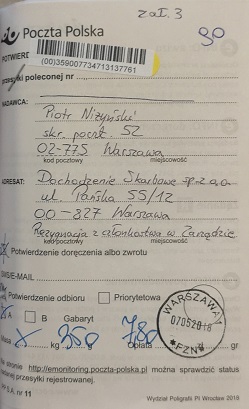 zał. 3
Poczta Polska
90
POTWIERDZ
(00)359007734713137761
przesyłki poleconej nr
NADAWCA:
Piotr Niżyński
skr. poczt. 52
02-775 Warszawa
kod pocztowy miejscowość
ADRESAT: Dochodzenie Skarbowe sp. z o.o.
ul. Pańska 55/12
00-827 Warszawa
Rezygnacja z członkostwa w Zarządzie
kod pocztowy miejscowość
Potwierdzenie doręczenia albo zwrotu
SMS/E-MAIL
Potwierdzenie odbioru Priorytetowa
A B Gabaryt
Masa kg 350 g Opłata 7,80 zł
WARSZAWA
07052018
*FZN*
Na stronie http://emonitoring.poczta-polska.pl można sprawdzić status
przesyłki rejestrowanej.
PP S.A. nr 11
Wydział Poligrafii PI Wrocław 2018